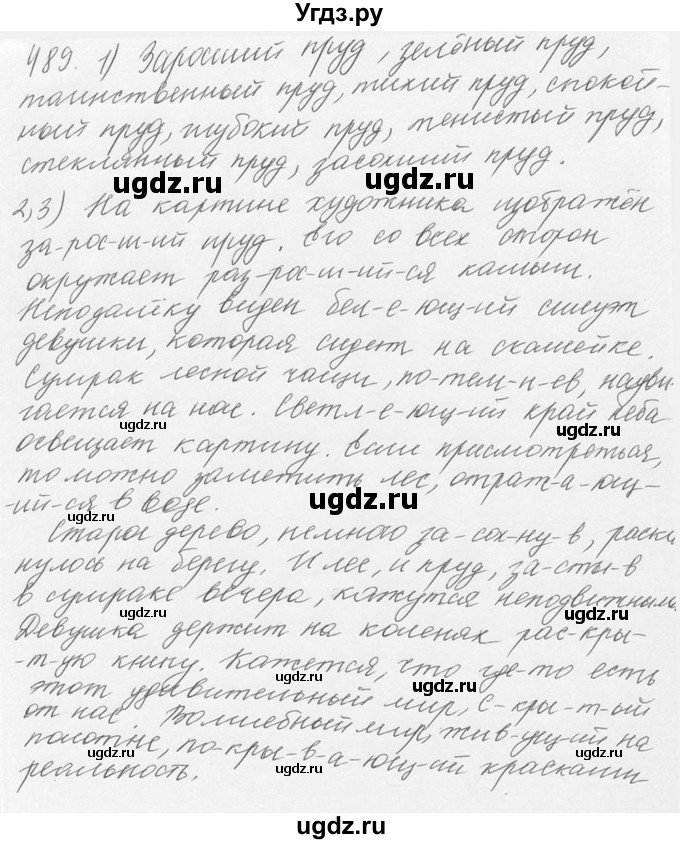 Угдз.ру
489. 1) Заросший пруд, зелёный пруд,
таинственный пруд, тихий пруд, спокой-
ный пруд, глубокий пруд, тенистый пруд,
стеклянный пруд, засохший пруд.
ugdz.ru ugdz.ru
2,3) На картине художника изображён
за-рос-ш-ий пруд. Его со всех сторон
ugdz.ru
окружает раз-рос-ш-ий-ся камыш.
Неподалёку виден бел-е-ющ-ий силуэт
девушки, которая сидит на скамейке.
ugdz.ru
Сумрак лесной чащи, по-тем-н-ев, надви-
гается на нас. Светл-е-ющ-ий край неба
ugdz.ru
освещает картину. Если присмотреться,
ugdz.ru
то можно заметить лес, отраж-а-ющ-
-ий-ся в воде.
ugdz.ru
Старое дерево, немного за-сох-ну-в, раски
нулось на берегу. И лес, и пруд, за-сты-в
ugdz.ru
в сумраке вечера, кажутся неподвижными.
ugdz.ru
Девушка держит на коленях рас-кры-
-т-ую книгу. Кажется, что где-то есть
ugdz.ru ugdz.ru
этот удивительный мир, с-кры-т-ый
от нас. Волшебный мир, жив-ущий на
полотне, по-кры-в-а-ющ-ий красками
ugdz.ru ugdz.ru ugdz.ru
реальность.
ugdz.ru